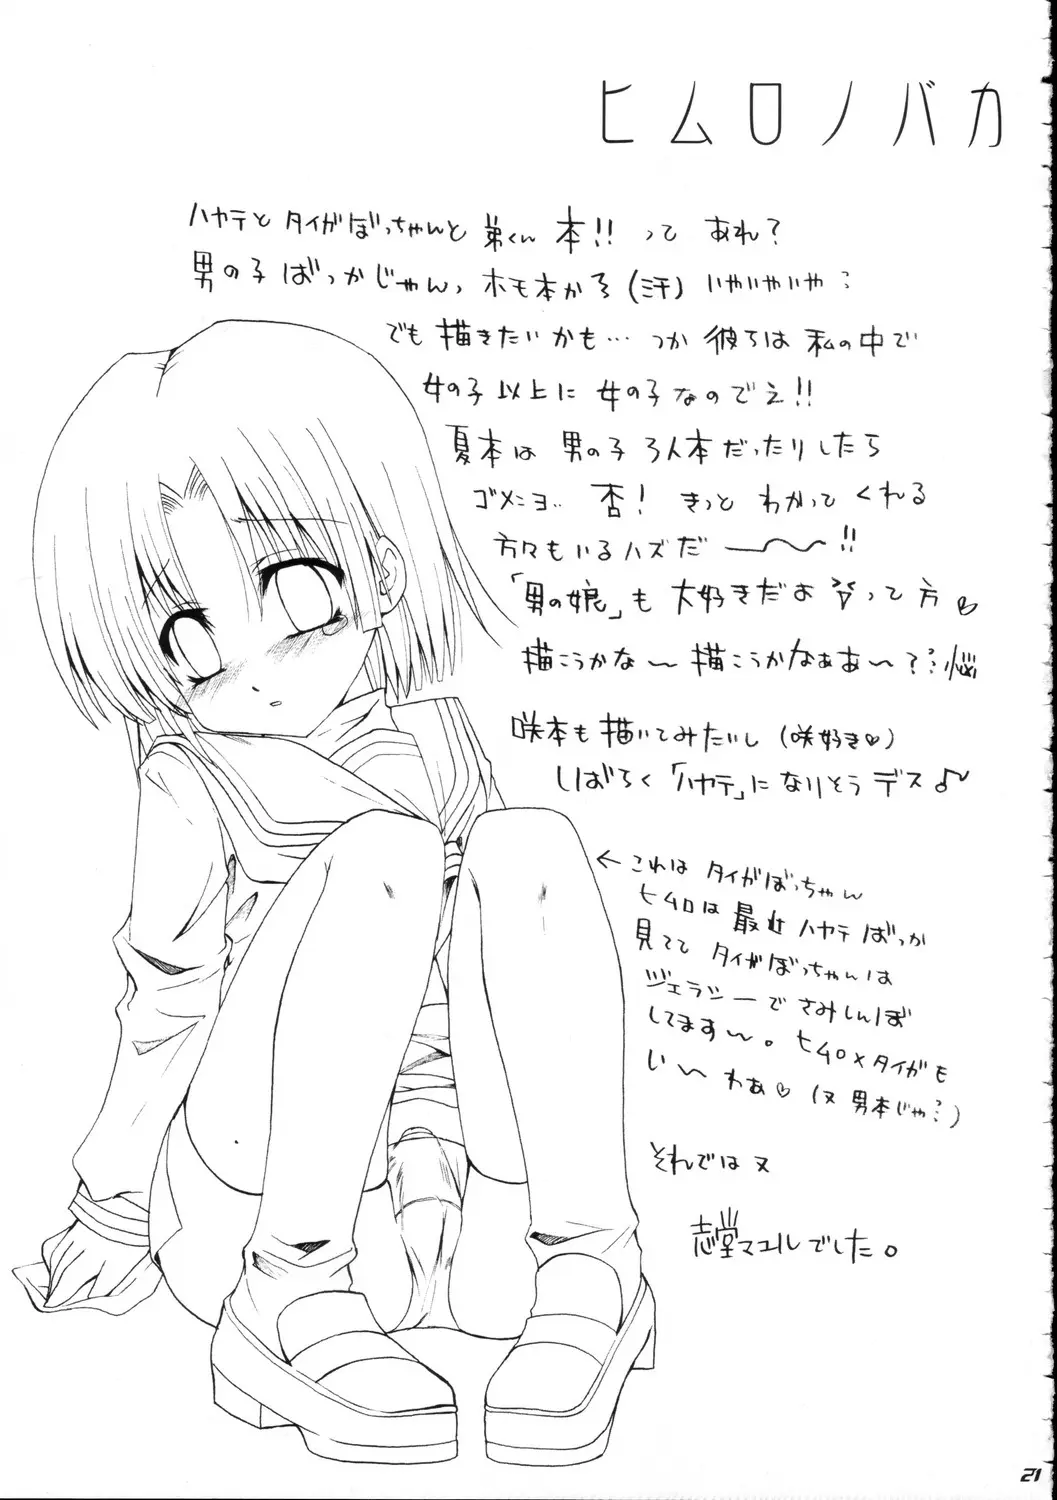 ヒムロノバカ
ハヤテとタイガぼっちゃんと弟くん本!!って あれ?
男の子ばっかじゃんっ ホモ本かろ(汗)いやいやいや…
でも描きたいかも…つか 彼らは 私の中で
女の子以上に 女の子なのでえ!!
夏本は 男の子3人本だったりしたら
ゴメニョ… 否! きっと わかってくれる
方々もいるハズだ〜〜!!
「男の娘」も 大好きだよ って方♡
描こうかな〜 描こうかなぁあ〜?…悩
咲本も描いてみたいし(咲好き♡)
しばらく「ハヤテ」になりそうデス♪
← これは タイガぼっちゃん
ヒムロは 最近 ハヤテばっか
見てて タイガぼっちゃんは
ジェラシーで さみしんぼ
してます〜。 ヒムロ×タイガも
い〜 わぁ♡(ヌ 男本じゃ…)
それではヌ
志堂マユルでした。
21